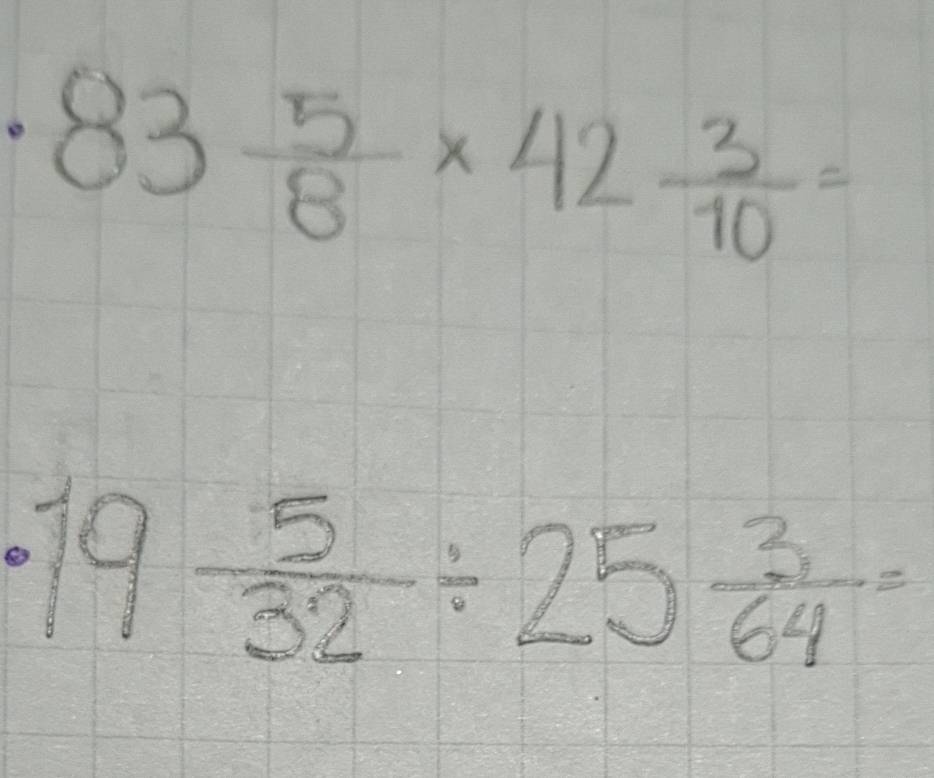 • 83 5/8 × 42 3/10 =
• 19 5/32 ÷ 25 3/64 =